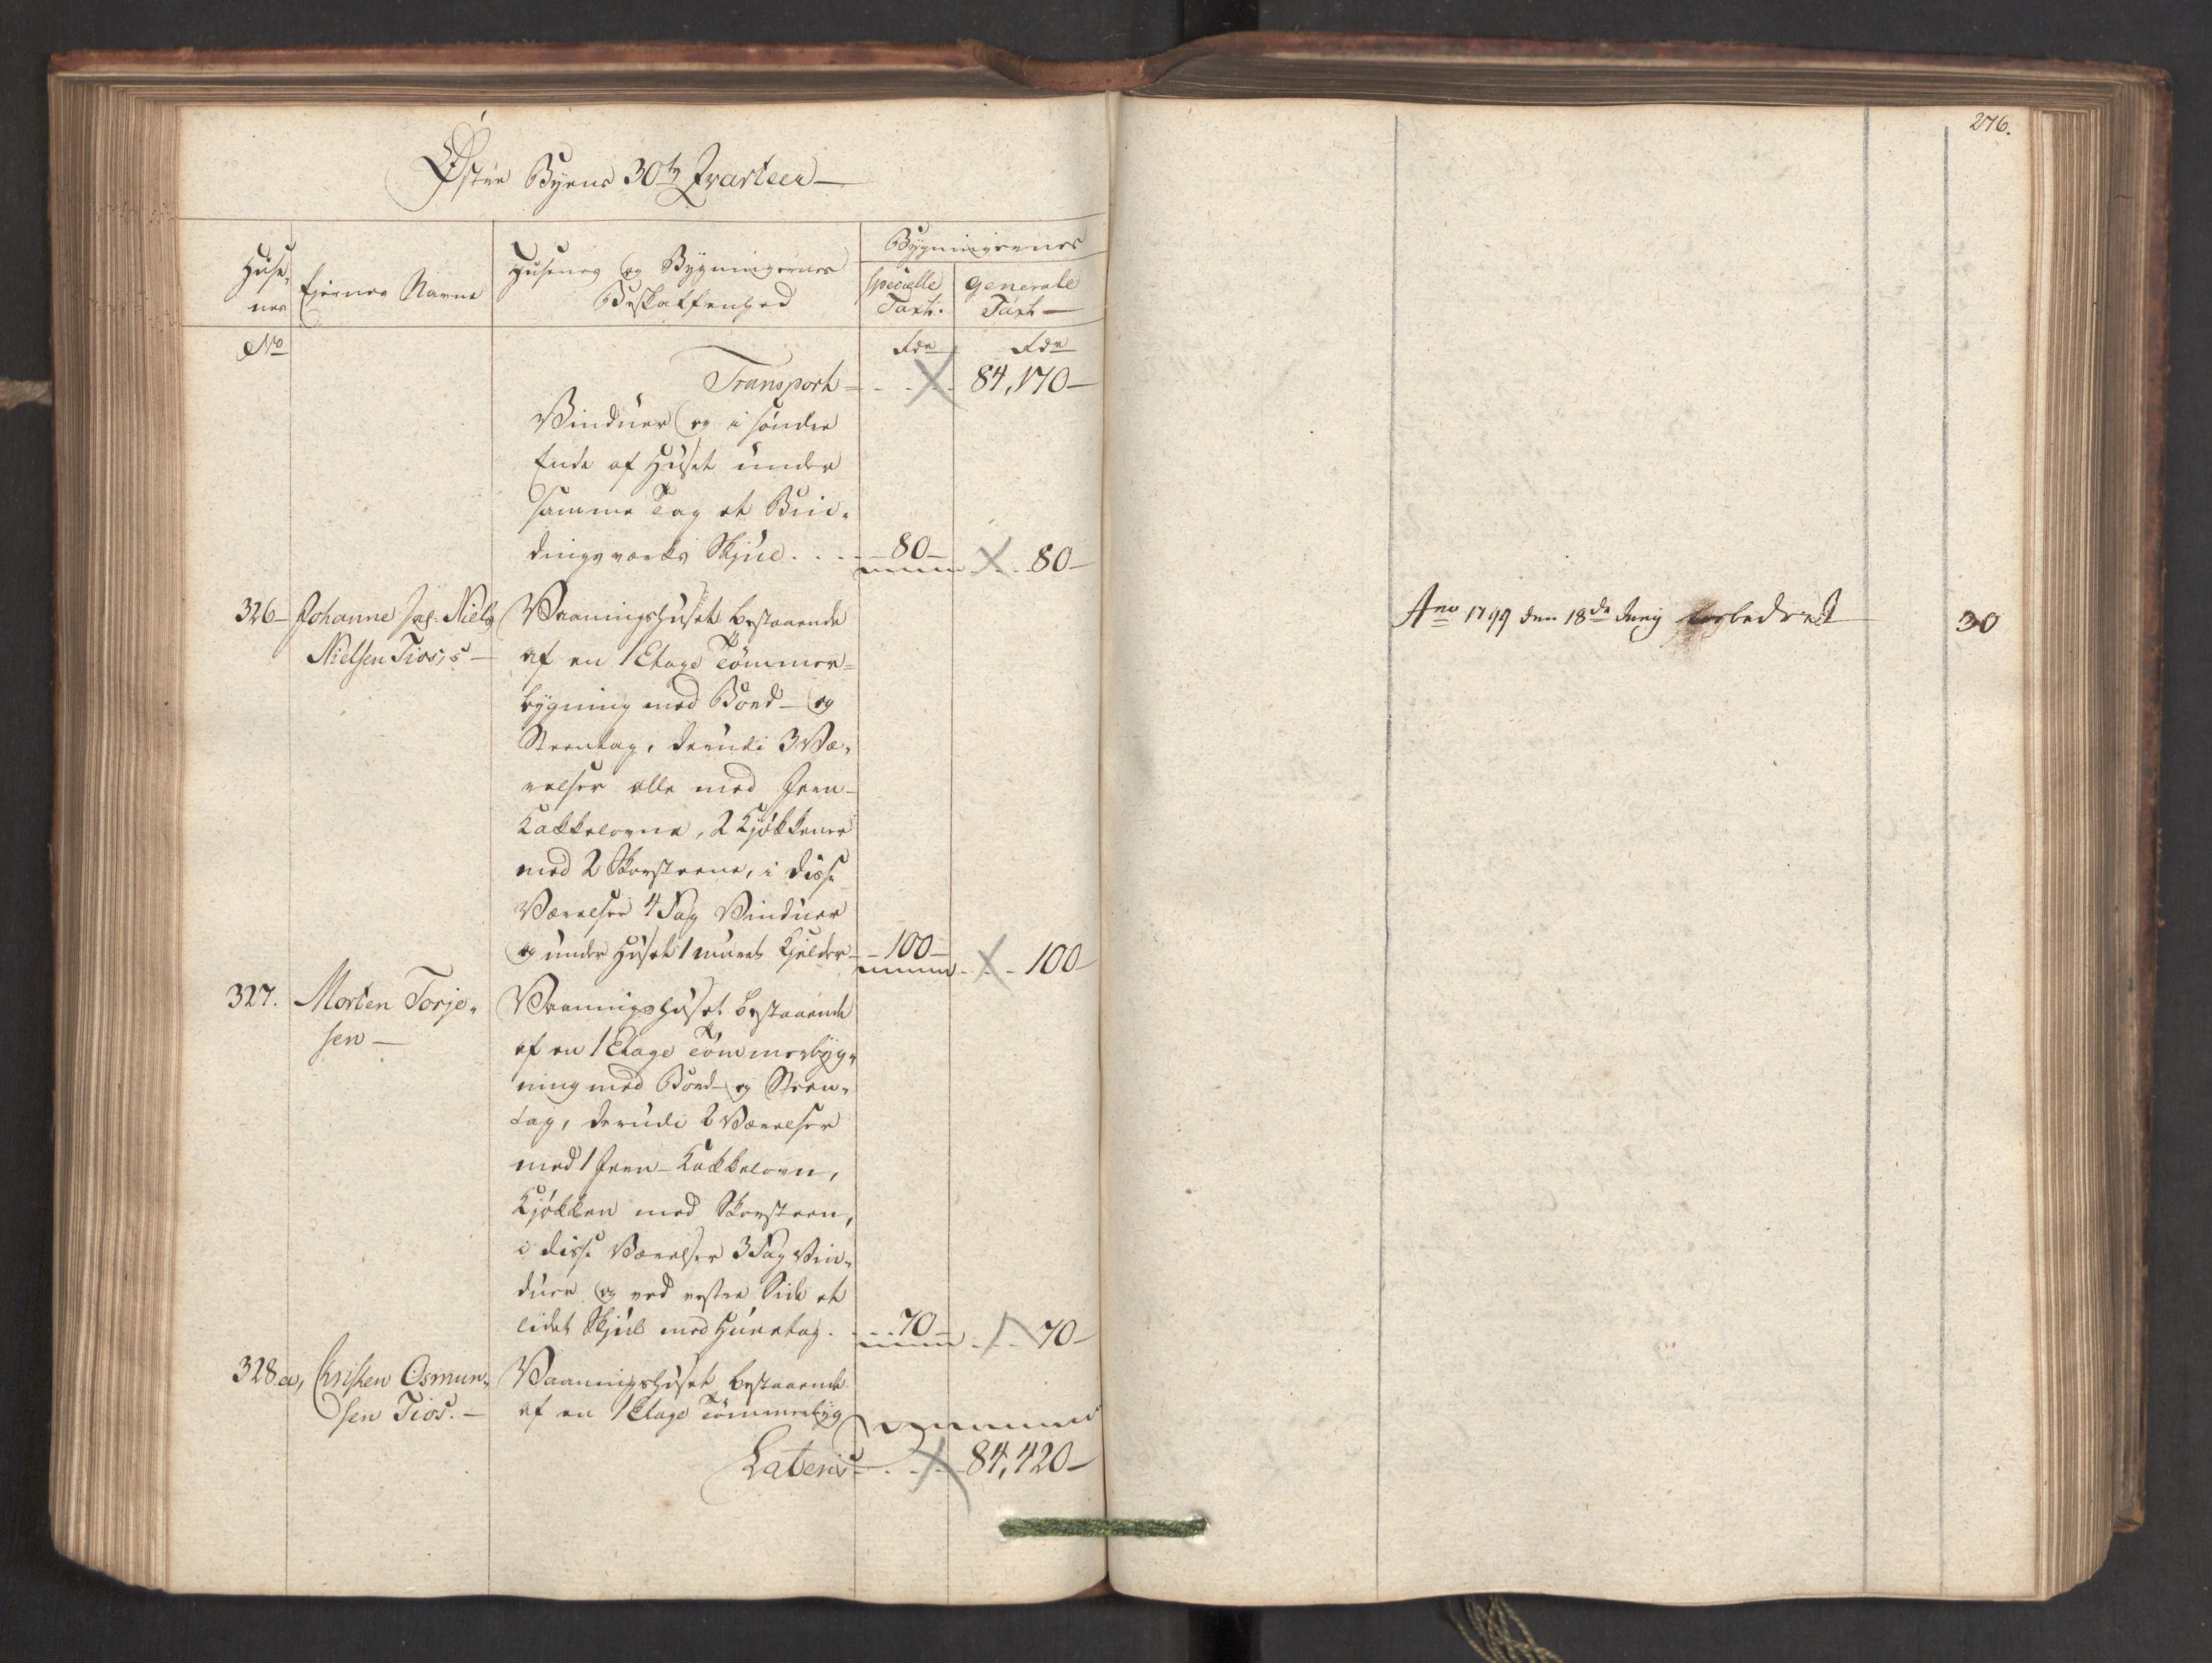 Øster Byens 30te Qvarteer
Bygningernes
Huse,
nes
Ejernes Navne
Husenes og Bygningernes
Beskaffenhed
specielle
Taxt.
generale
Taxt
No
Rdr
Rdr
Transport 84,170
Vinduer og i søndre
Ende af Huset under
samme Tag et Bin,
dingsværks Skjul 80 80
326 Johanne Sal. Niels Vaaningshuset bestaaende
Nielsen Tios,s af en 1 Etage Tømmer
bygning med Bord og
Steentag, derudi 3 Væ,
relser alle med Jern
Kakkelovne, 2 Kjøkkener
med 2 Skorsteene, i disse
Værelser 4 Fag Vinduer
og under Huset 1 muret Kjelder 100 100
327. Morten Torje, Vaaningshuset bestaaende
sen af en 1 Etage Tømmerbyg,
ning med Bord og Steen,
tag, derudi 2 Værelser
med 1 Jern Kakkelovn,
Kjøkken med Skorsteen,
i disse Værelser 3 Fag Vin,
duer og ved vestre Side et
lidet Skjul med Huuntag 70 70
328a, Christen Osmun, Vaaningshuset bestaaende
sen Tios. af en 1 Etage Tømmerbyg
Lateris 84,420
276.
Ano 1799 den 18de Junij forbedret 30